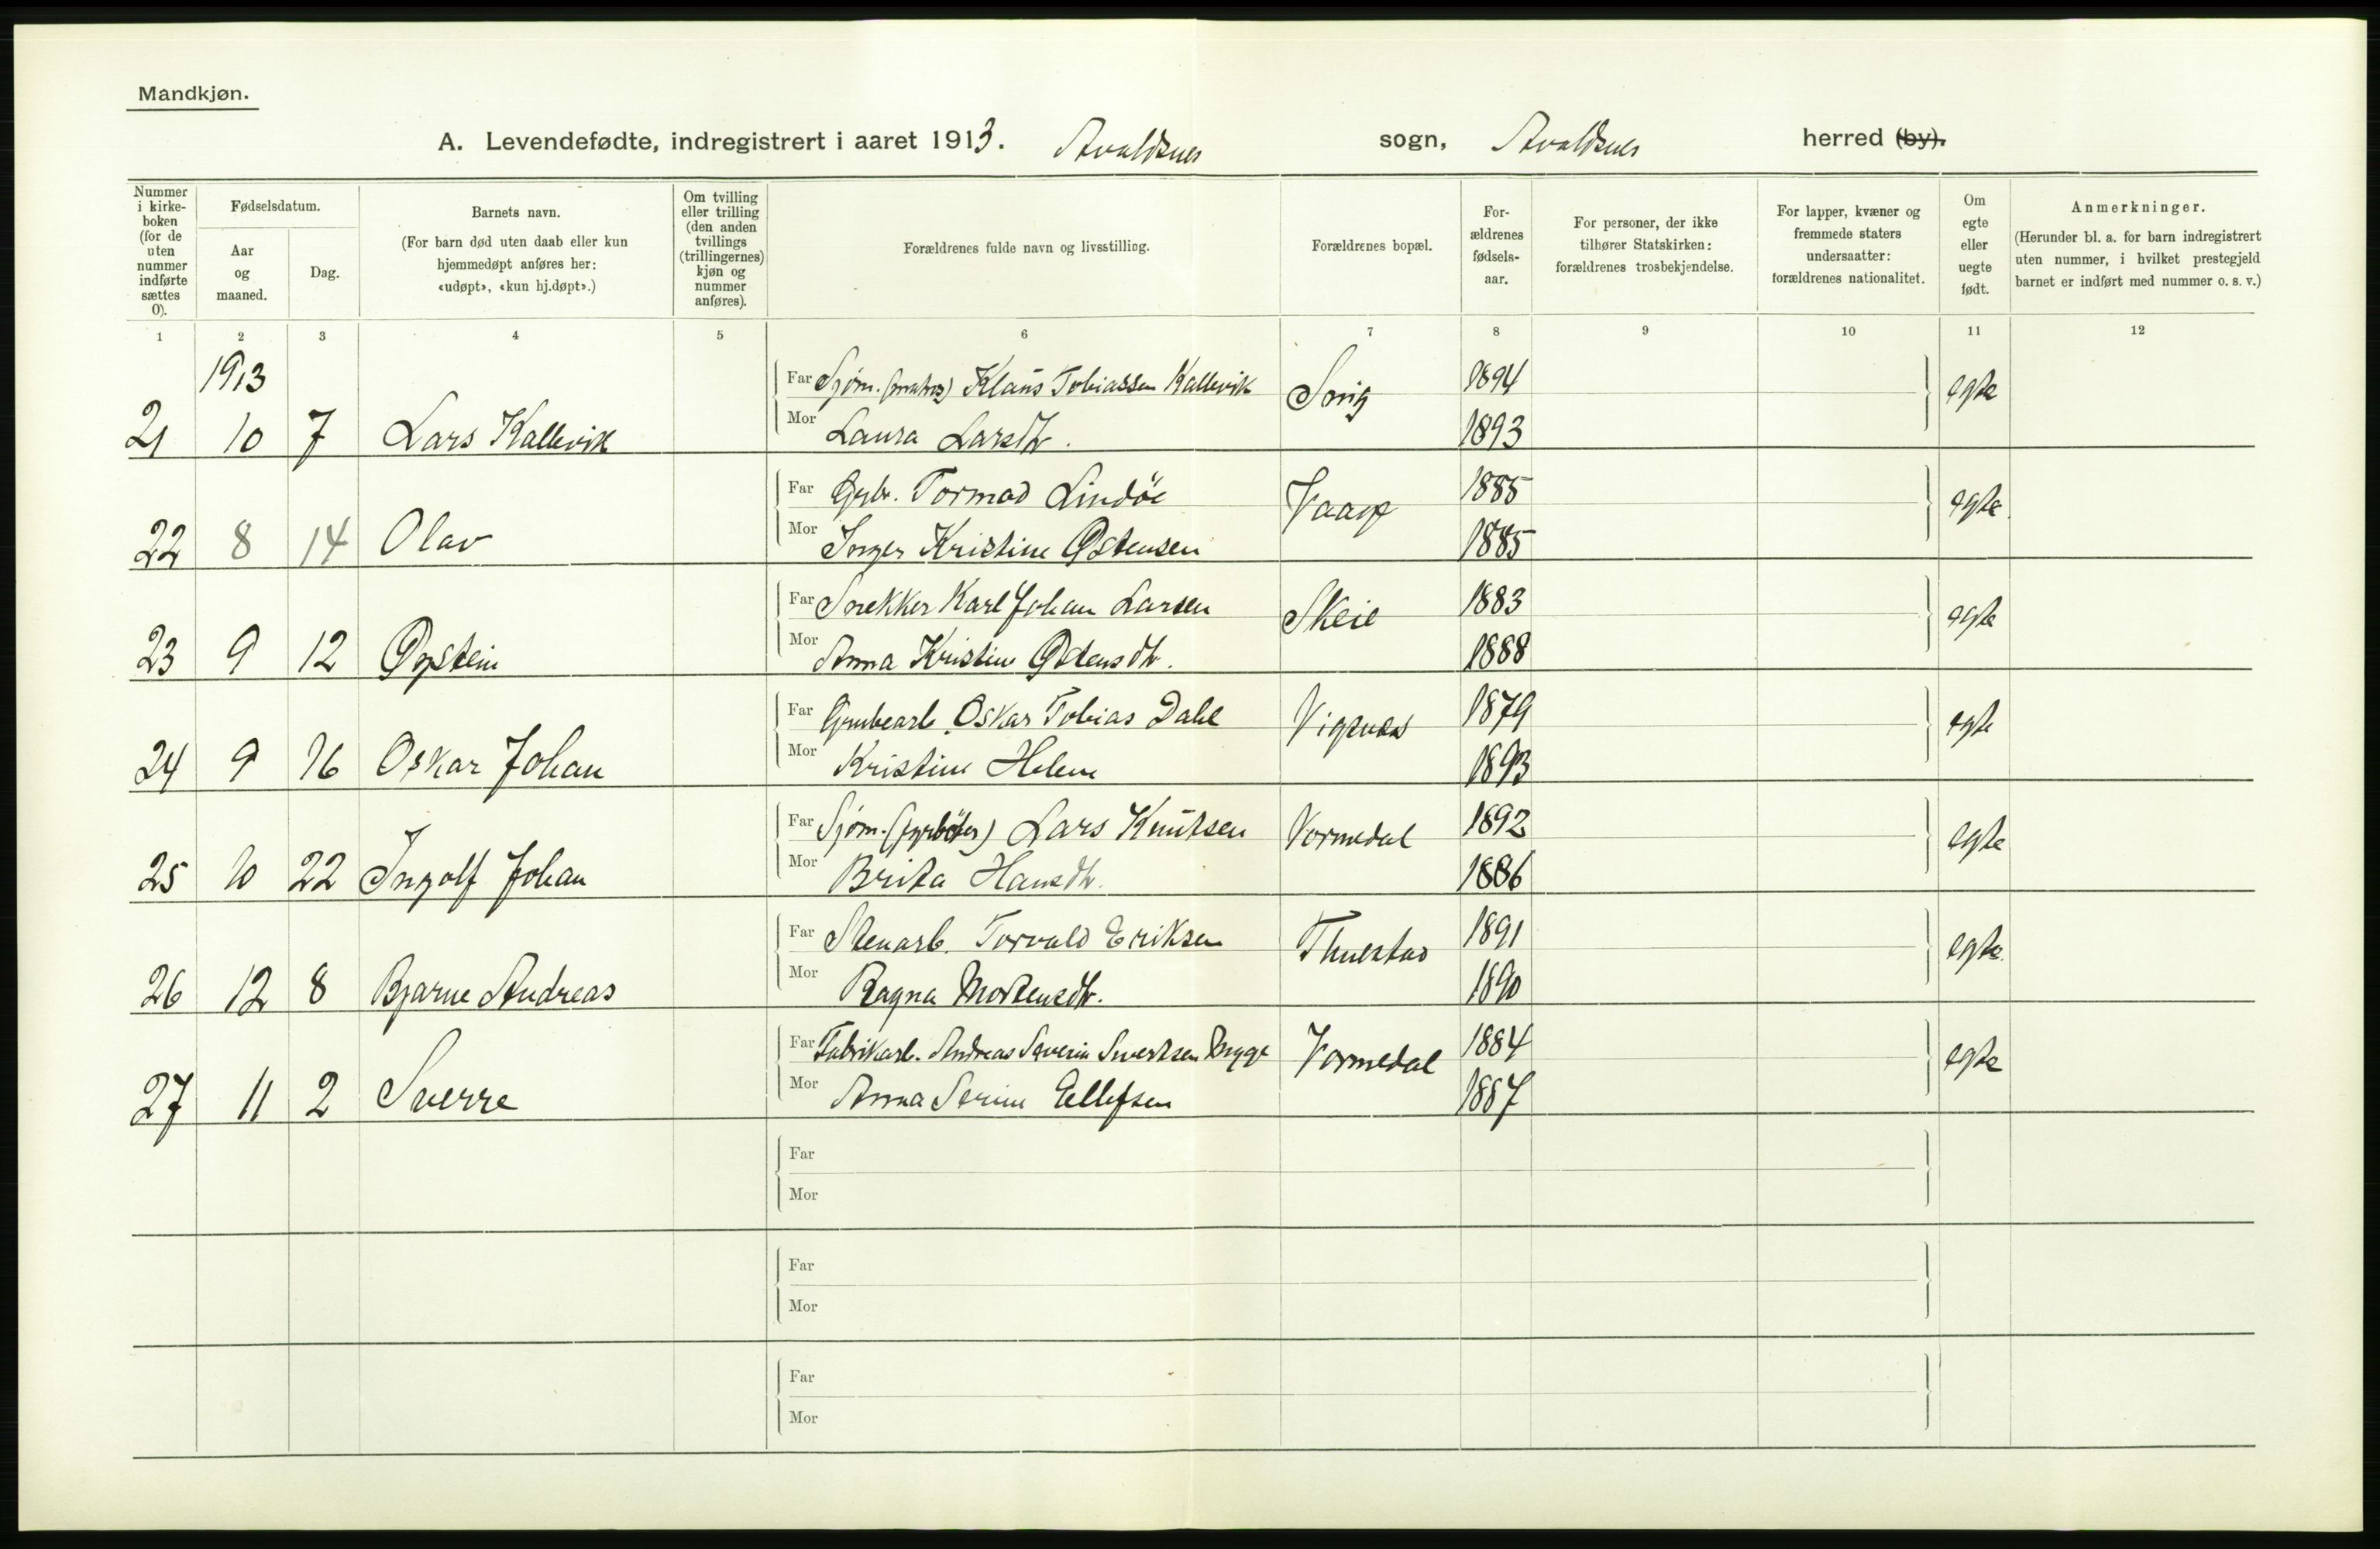 Mandkjøn.
A. Levendefødte, indregistrert i aaret 1913. Avaldsnes sogn, Avaldsnes herred (by).
Nummer i kirkeboken (for de uten nummer indførte sættes 0).
Fødselsdatum.
Aar og maaned.
Dag.
Barnets navn.
(For barn død uten daab eller kun hjemmedøpt anføres her: «udøpt», «kun hj.døpt».)
Om tvilling eller trilling (den anden tvillings (trillingernes) kjøn og nummer anføres).
Forældrenes fulde navn og livsstilling.
Forældrenes bopæl.
Forældrenes fødselsaar.
For personer, der ikke tilhører Statskirken: forældrenes trosbekjendelse.
For lapper, kvæner og fremmede staters undersaatter: forældrenes nationalitet.
Om egte eller uegte født.
Anmerkninger.
(Herunder bl. a. for barn indregistrert uten nummer, i hvilket prestegjeld barnet er indført med nummer o. s. v.)
1 2 3 4 5 6 7 8 9 10 11 12
1913
Far Sjøm. (matros) Klaus Tobiassen Kallevik 1894 egte
21 10 7 Lars Kallevik Mor Laura Larsdtr. 1893
Far Grbr. Tormod Lindöe 1885 egte
22 8 14 Olav Mor Inger Kristine Østensen 1885
Far Snekker Karl Johan Larsen Skeie 1883 egte
23 9 12 Øystein Mor Anna Kristine Østensdtr. 1888
Far Grubearb. Oskar Tobias Dahl Vigsnes 1879 egte
24 9 16 Oskar Johan Mor Kristine Helene 1893
Far Sjøm. (fyrböter) Lars Knutsen Vormedal 1892 egte
25 10 22 Ingolf Johan Mor Brita Hansdtr. 1886
Far Stenarb. Torvald Eriksen Thuestad 1891 egte
26 12 8 Bjarne Andreas Mor Ragna Mortensdtr. 1890
Far Fabrikarb. Andreas Severin Sivertsen Vormedal 1884 egte
27 11 2 Sverre Mor Anna Serine Ellefsen 1887
Far
Mor
Far
Mor
Far
Mor